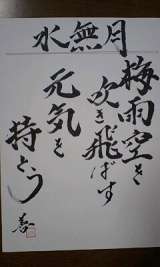 水無月
梅雨空を
吹き飛ばす
元気を
持とう